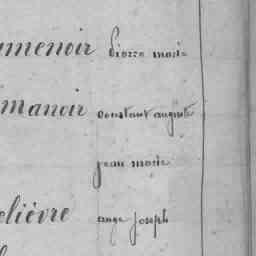 umenoir pierre marie
manoir constant auguste
jean marie
elièvre ange joseph